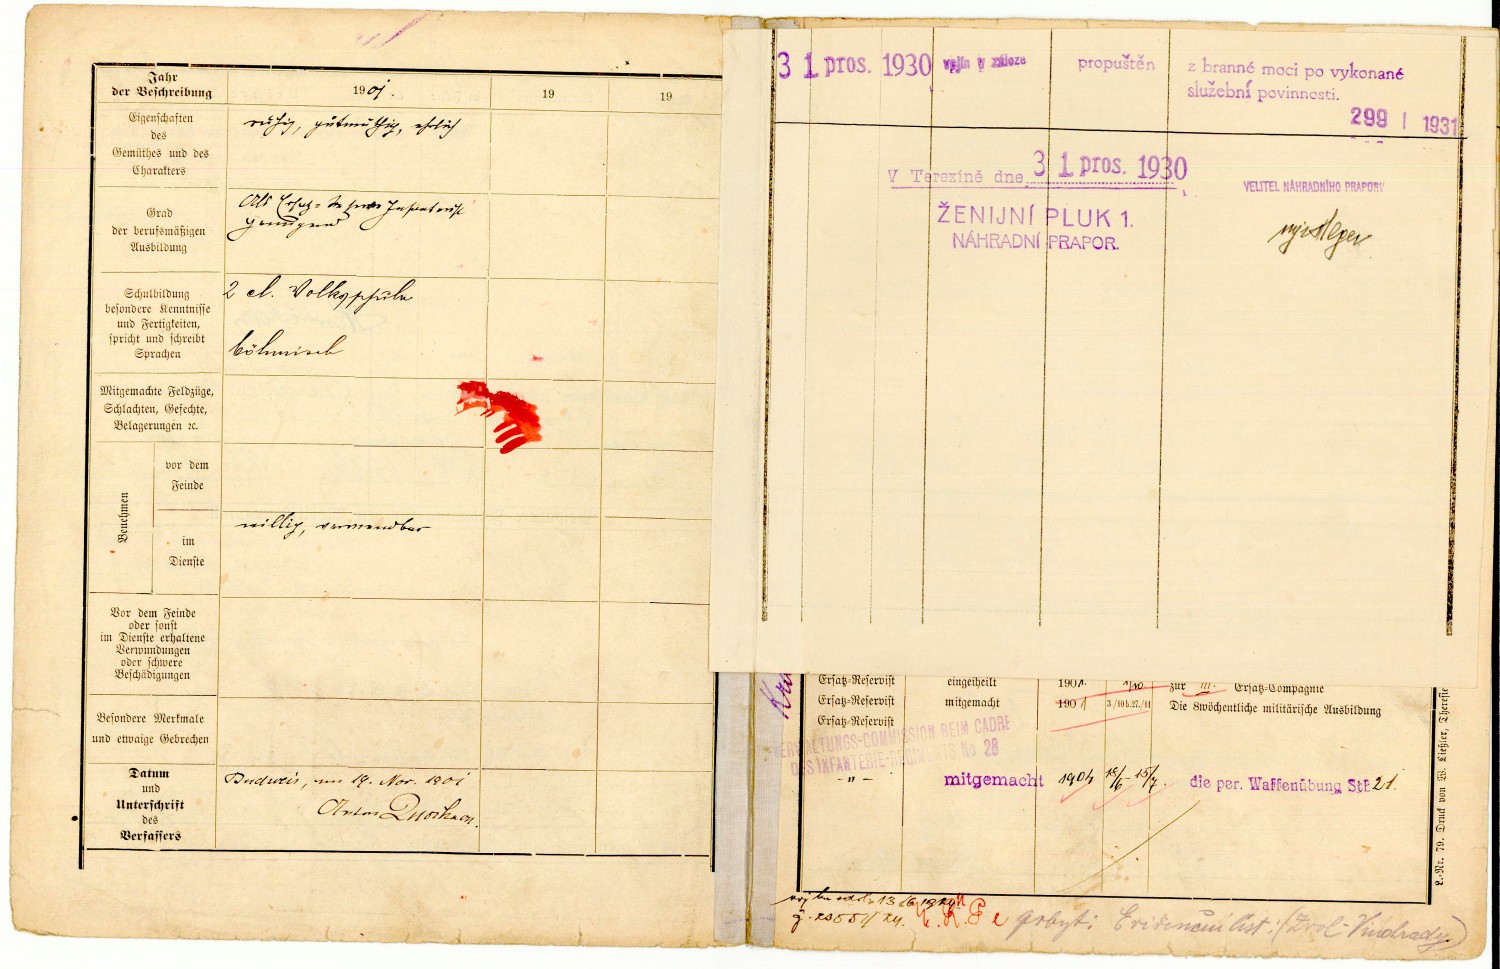 Jahr
der Beschreibung
1901.
19
19
Eigenschaften
des
Gemüthes und des
Charakters
ruhig, gutmüthig, ehrlich
Grad
der berufsmäßigen
Ausbildung
Als Ersatz-
Schulbildung
besondere Kenntnisse
und Fertigkeiten,
spricht und schreibt
Sprachen
2 cl. Volksschule
böhmisch
Mitgemachte Feldzüge,
Schlachten, Gefechte,
Belagerungen ꝛc.
Benehmen
vor dem
Feinde
im
Dienste
willig, verwendbar
Vor dem Feinde
oder sonst
im Dienste erhaltene
Verwundungen
oder schwere
Beschädigungen
Besondere Merkmale
und etwaige Gebrechen
Datum
und
Unterschrift
des
Verfassers
Budweis, am 19. Nov. 1901
Anton
31 pros. 1930 vojín v záloze propuštěn z branné moci po vykonané
služební povinnosti.
299 / 1931
V Terezíně dne 31 pros. 1930
VELITEL NÁHRADNÍHO PRAPORU
ŽENIJNÍ PLUK 1.
NÁHRADNÍ PRAPOR.
Ersatz-Reservist eingetheilt 1901. 1/10 zur III. Ersatz-Compagnie
Ersatz-Reservist mitgemacht 1901 3/10 b. 27./11 Die 8wöchentliche militärische Ausbildung
Ersatz-Reservist
VERWALTUNGS-COMMISSION BEIM CADRE
DES INFANTERIE-REGIMENTS No 28
-"- mitgemacht 1904 18/6-15/7. die per. Waffenübung Stt 21.
L.-Nr. 79. Druck von W. Ließler, Theresie
13/6 1924
pobyt: Evidenční list: (Zvol-Vinohrady)